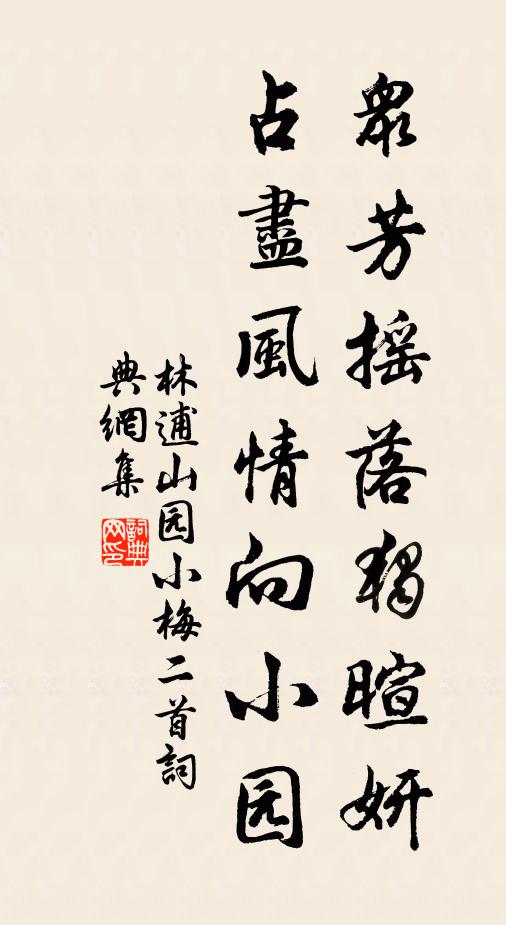 眾芳摇落獨暄妍
占盡風情向小园
林逋山园小梅二首詞
典網集
詞典网印